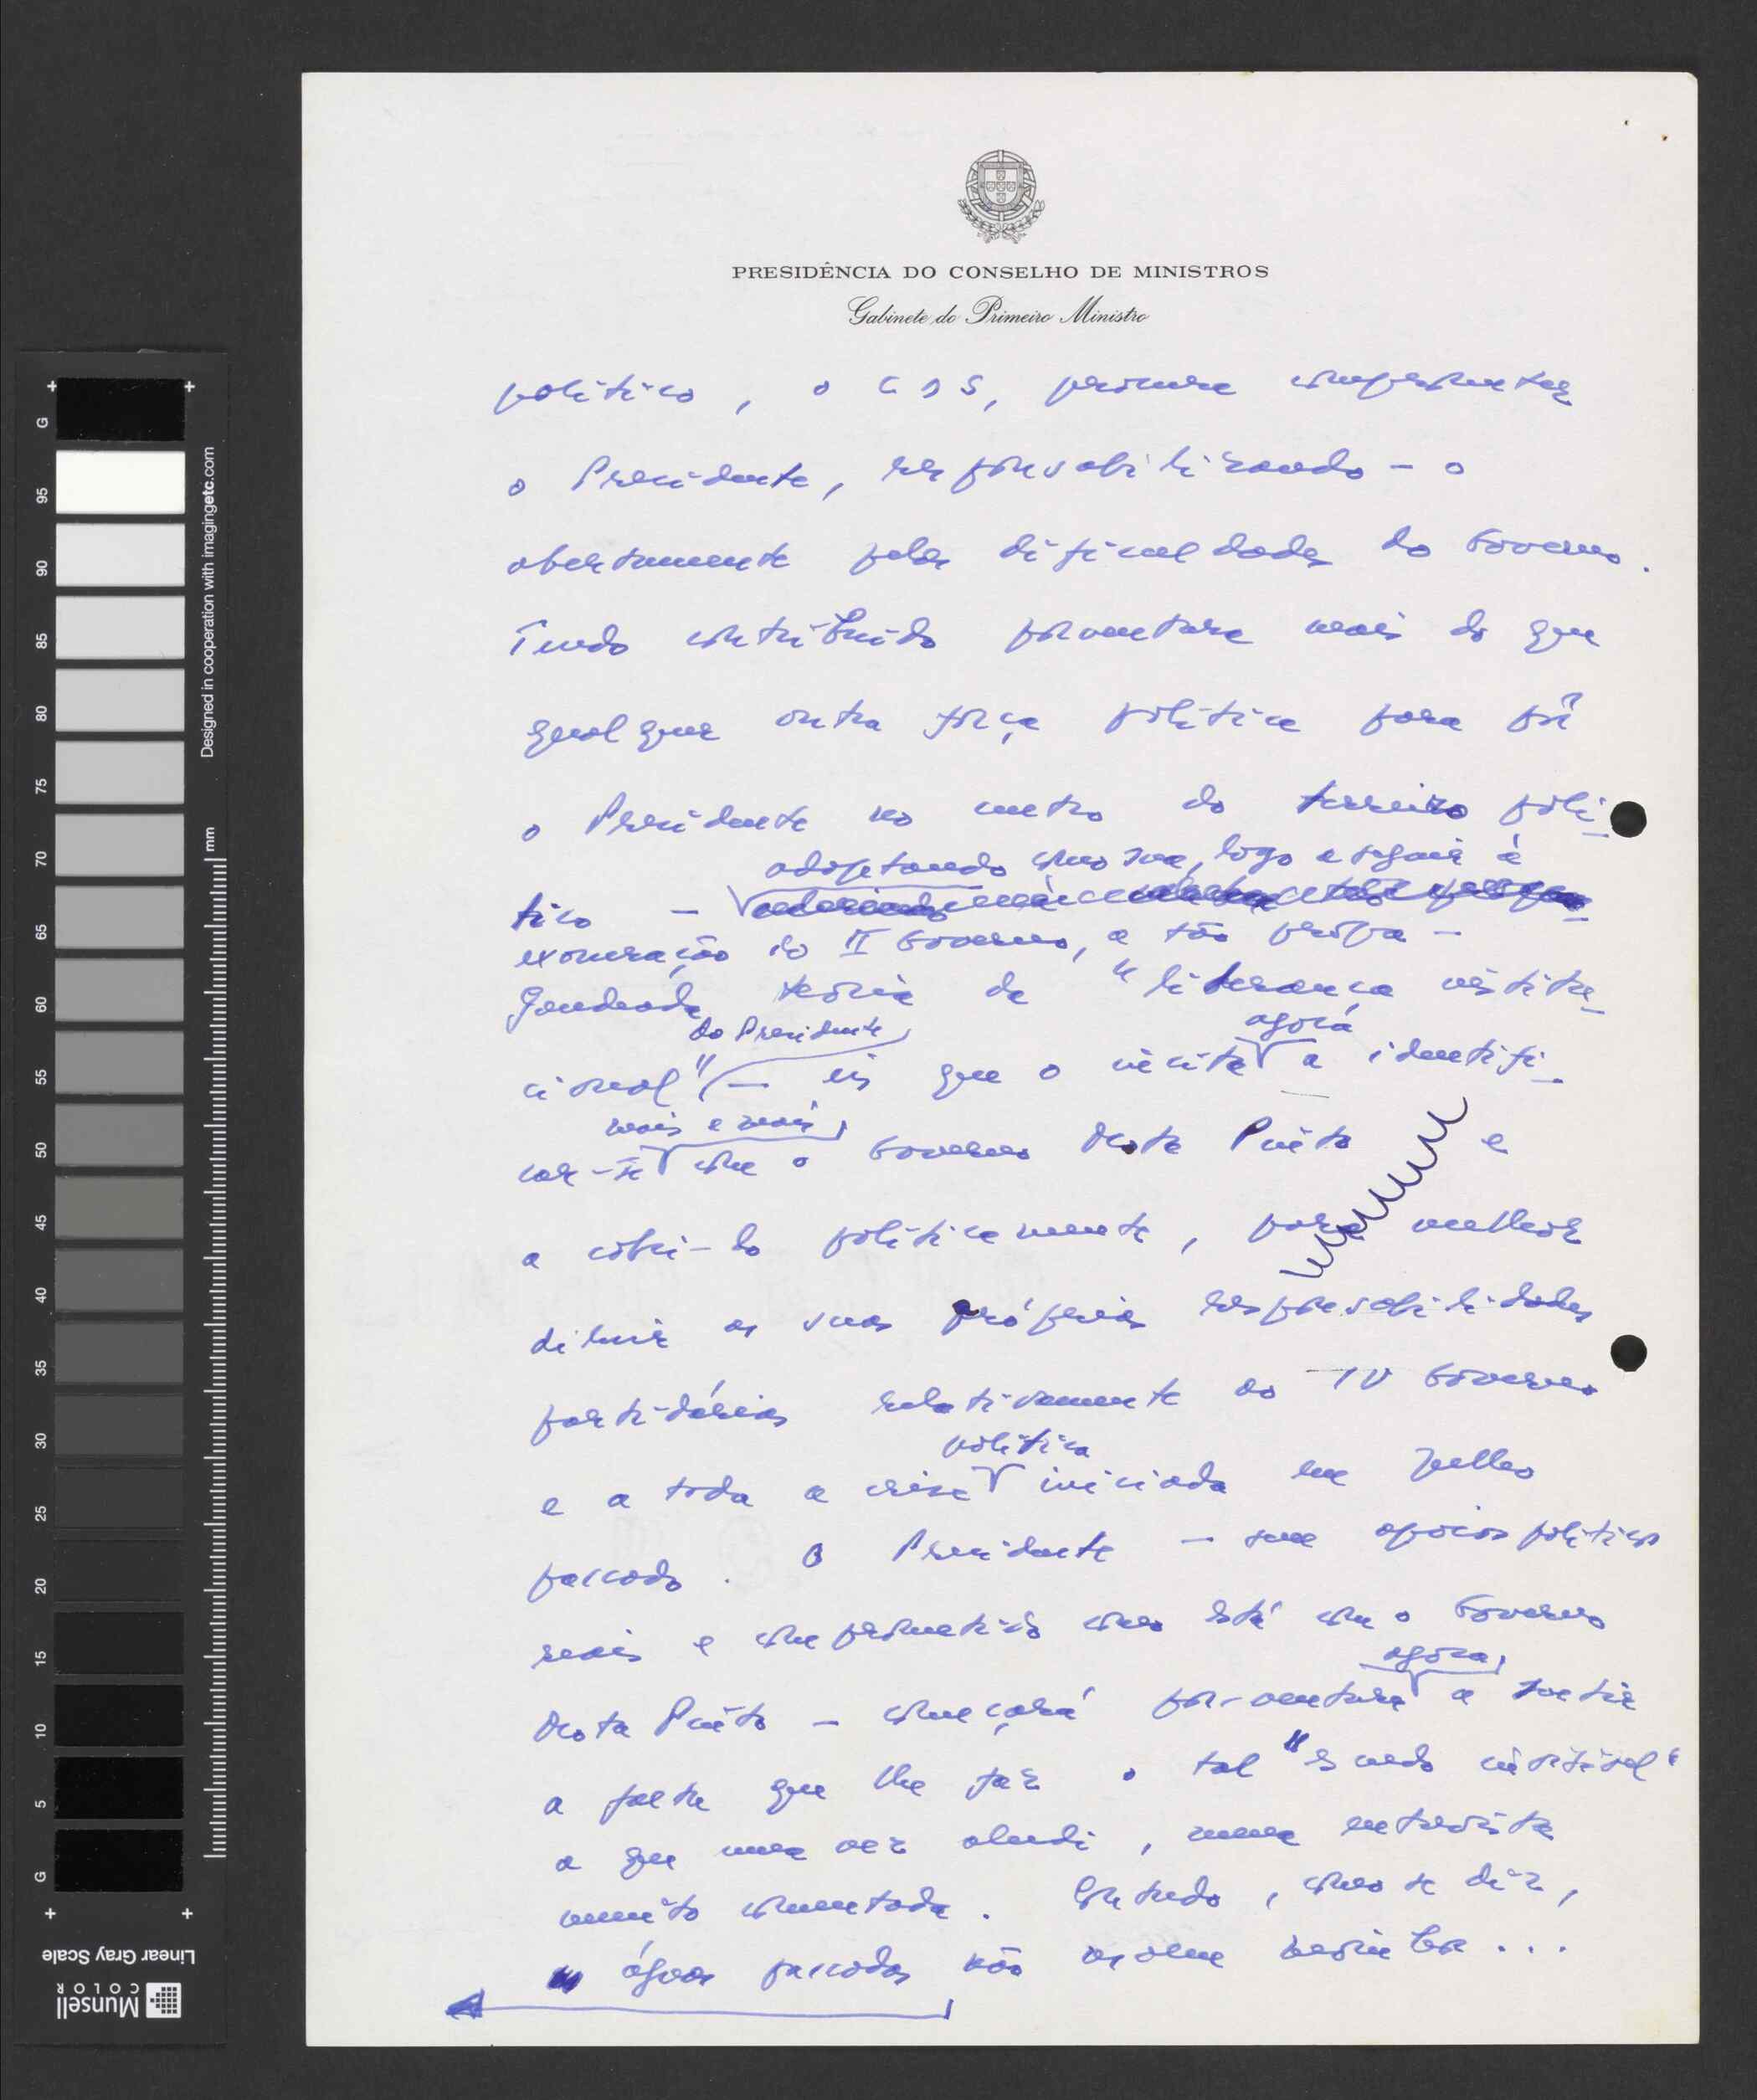 PRESIDÊNCIA DO CONSELHO DE MINISTROS
Gabinete do Primeiro Ministro
político, o CDS, procura comprometer
o Presidente, responsabilizando-o
abertamente pelas dificuldades do Governo.
Tendo contribuído porventura mais do que
qualquer outra força política para pôr
o Presidente no centro do terreiro polí-
adoptando como sua, logo a seguir à
tico -
exoneração do II Governo, a tão propa-
gandeada teoria da "liderança institu-
do Presidente agora
cional" - eis que o incita a identifi-
mais e mais
car-se com o Governo Mota Pinto e
a cobri-lo politicamente, para melhor
diluir as suas próprias responsabilidades
partidárias relativamente ao IV Governo
política
e a toda a crise iniciada em Julho
passado. O Presidente - sem apoios políticos
reais e comprometido como está com o Governo
agora
Mota Pinto - começará porventura a sentir
a falta que lhe faz o tal "escudo invisível"
a que uma vez aludi, numa entrevista
muito comentada. Contudo, como se diz,
águas passadas não movem moinhos...
Designed in cooperation with imagingetc.com
mm
G 95 90 85 80 75 70 65 60 55 50 45 40 35 30 25 20 15 10 5 G
Linear Gray Scale
Munsell
COLOR